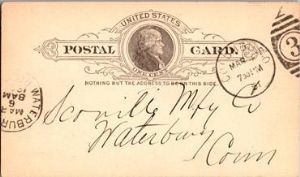 UNITED STATES
POSTAL CARD.
ONE CENT
NOTHING BUT THE ADDRESS TO BE ON THIS SIDE.
MAR
730 PM
3
WATERBURY
MAR
6
8AM
Scoville Mfg Co
Waterbury
Conn